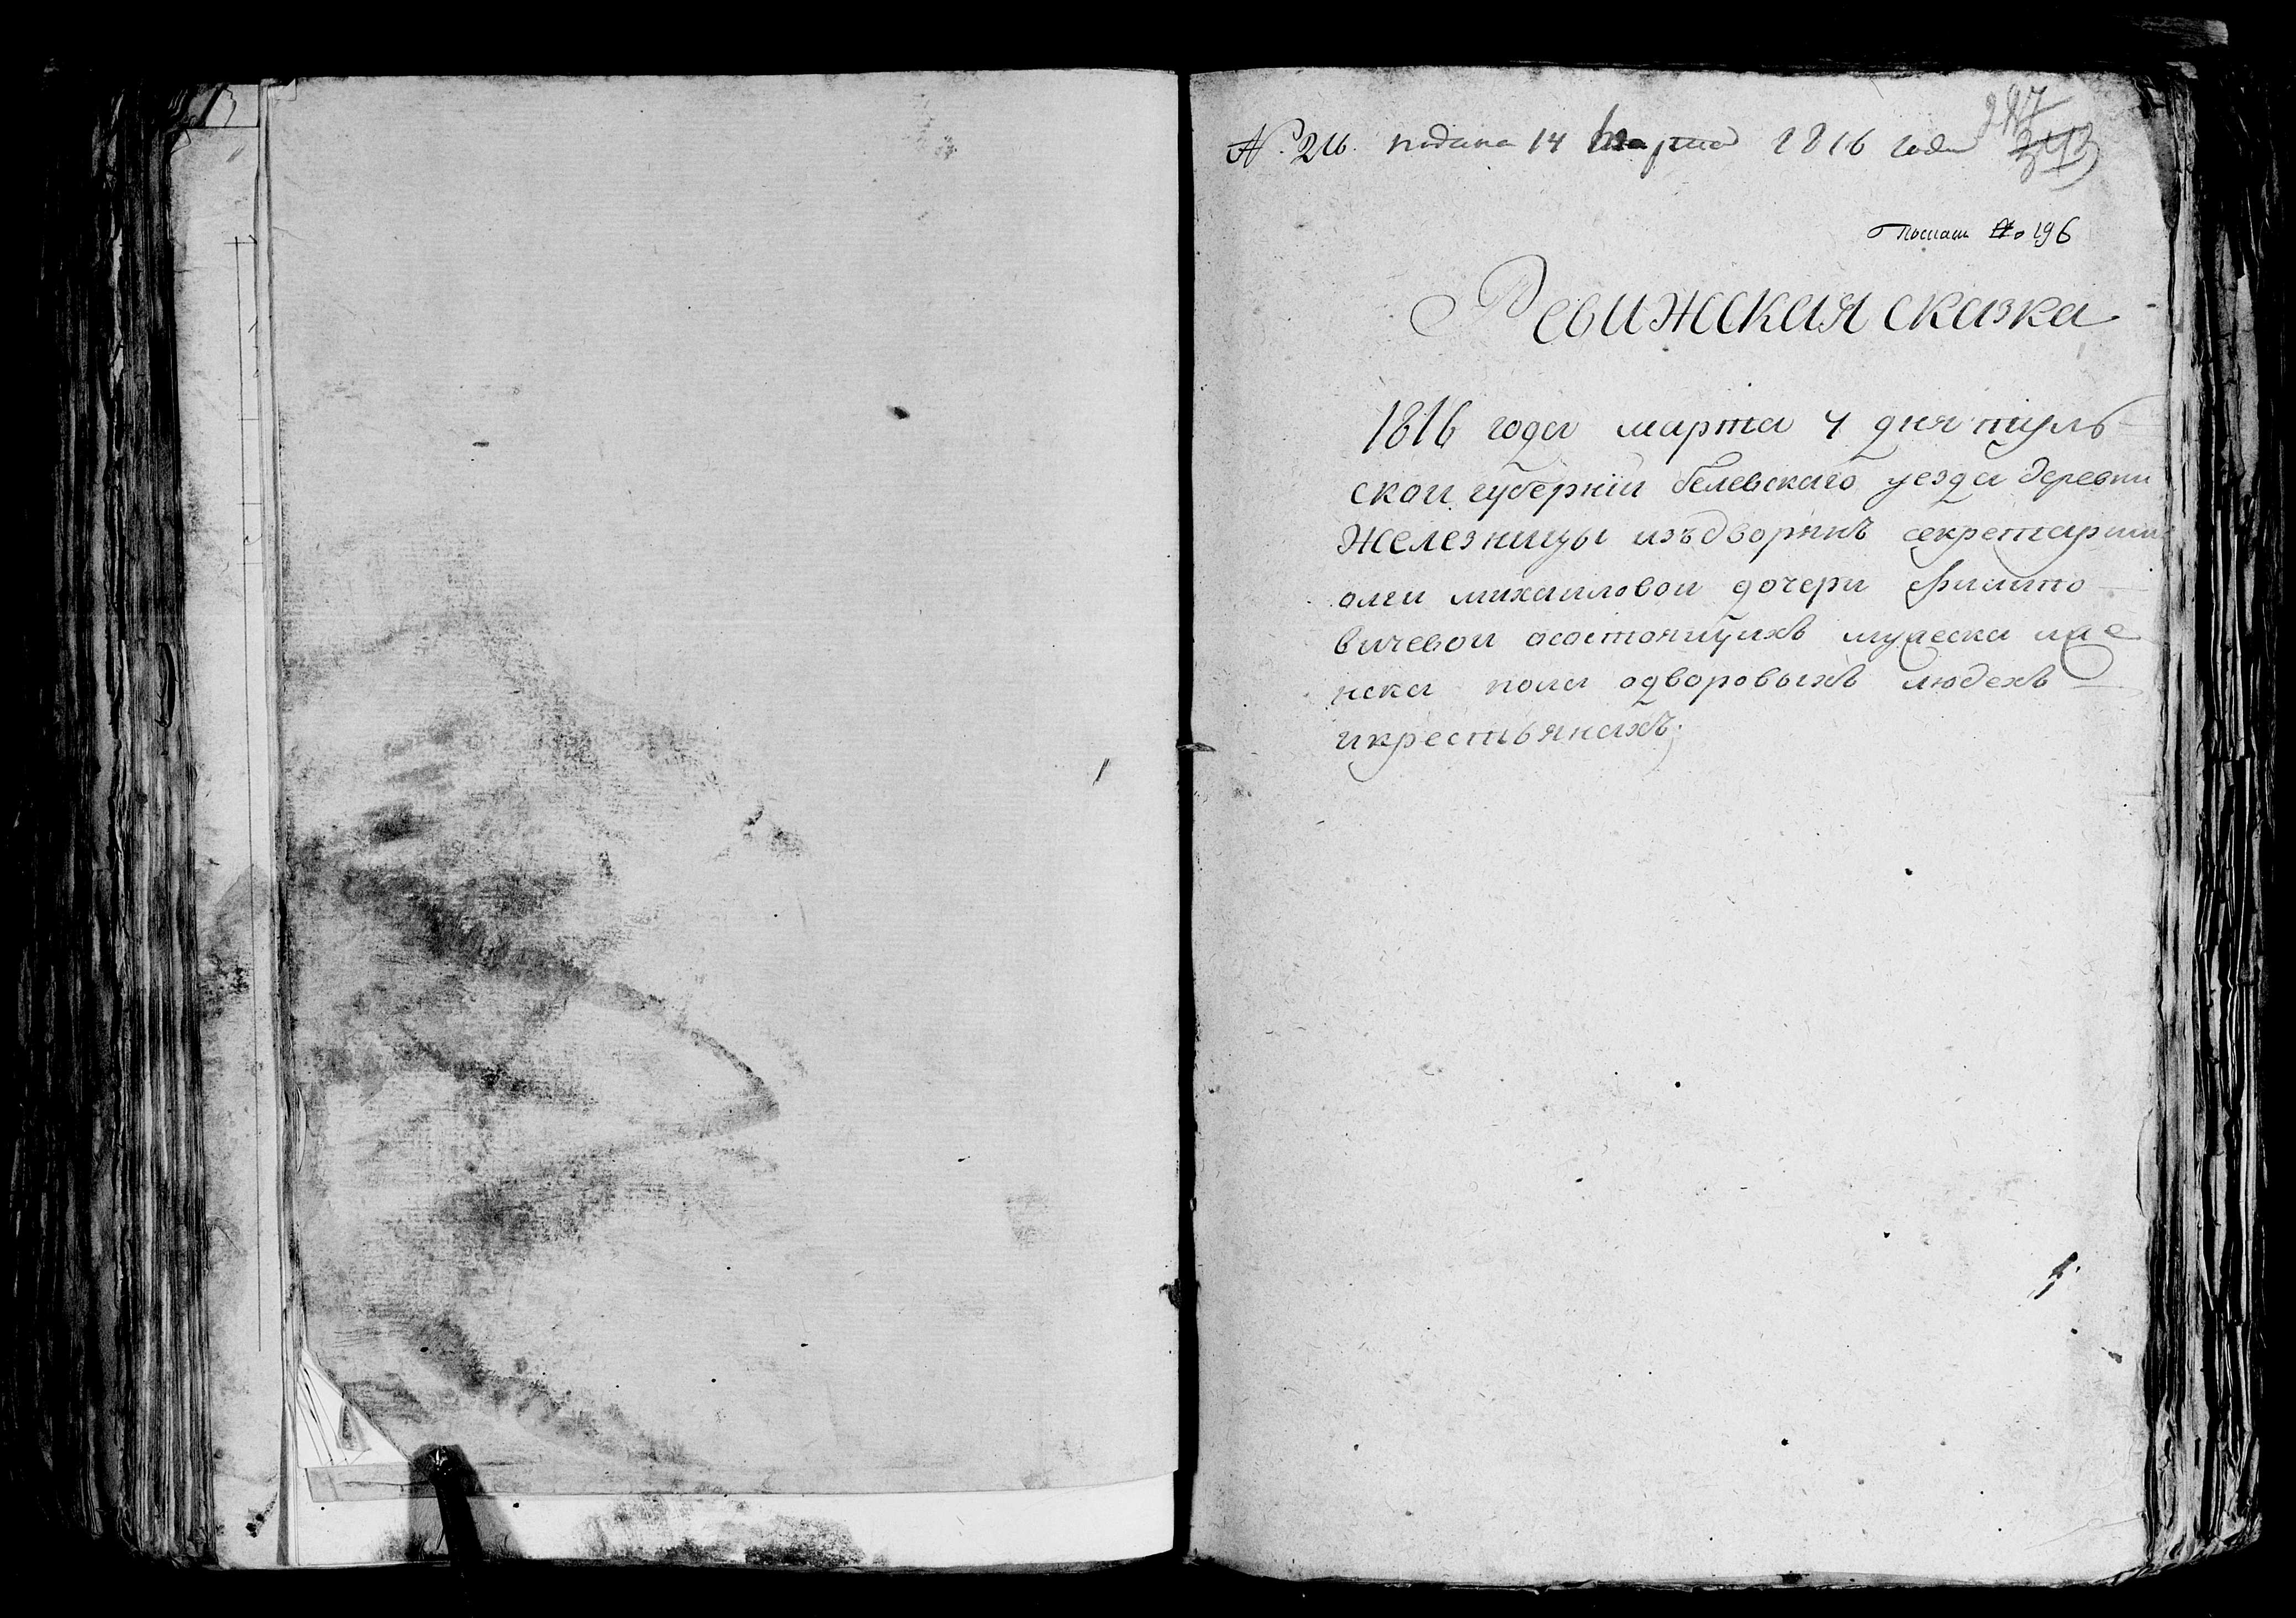 №. 216. подана 14 марта 1816 года
247
343
№ 196
Ревижская сказка
1816 года марта 4 дня туль
скои губернiи белевскаго уезда деревни
железницы изъдворянъ секретарши
олги михаиловои дочери филипо
вичевои осостоящихъ мужеска иже
нска пола одворовыхъ людехъ
икрестьянахъ;